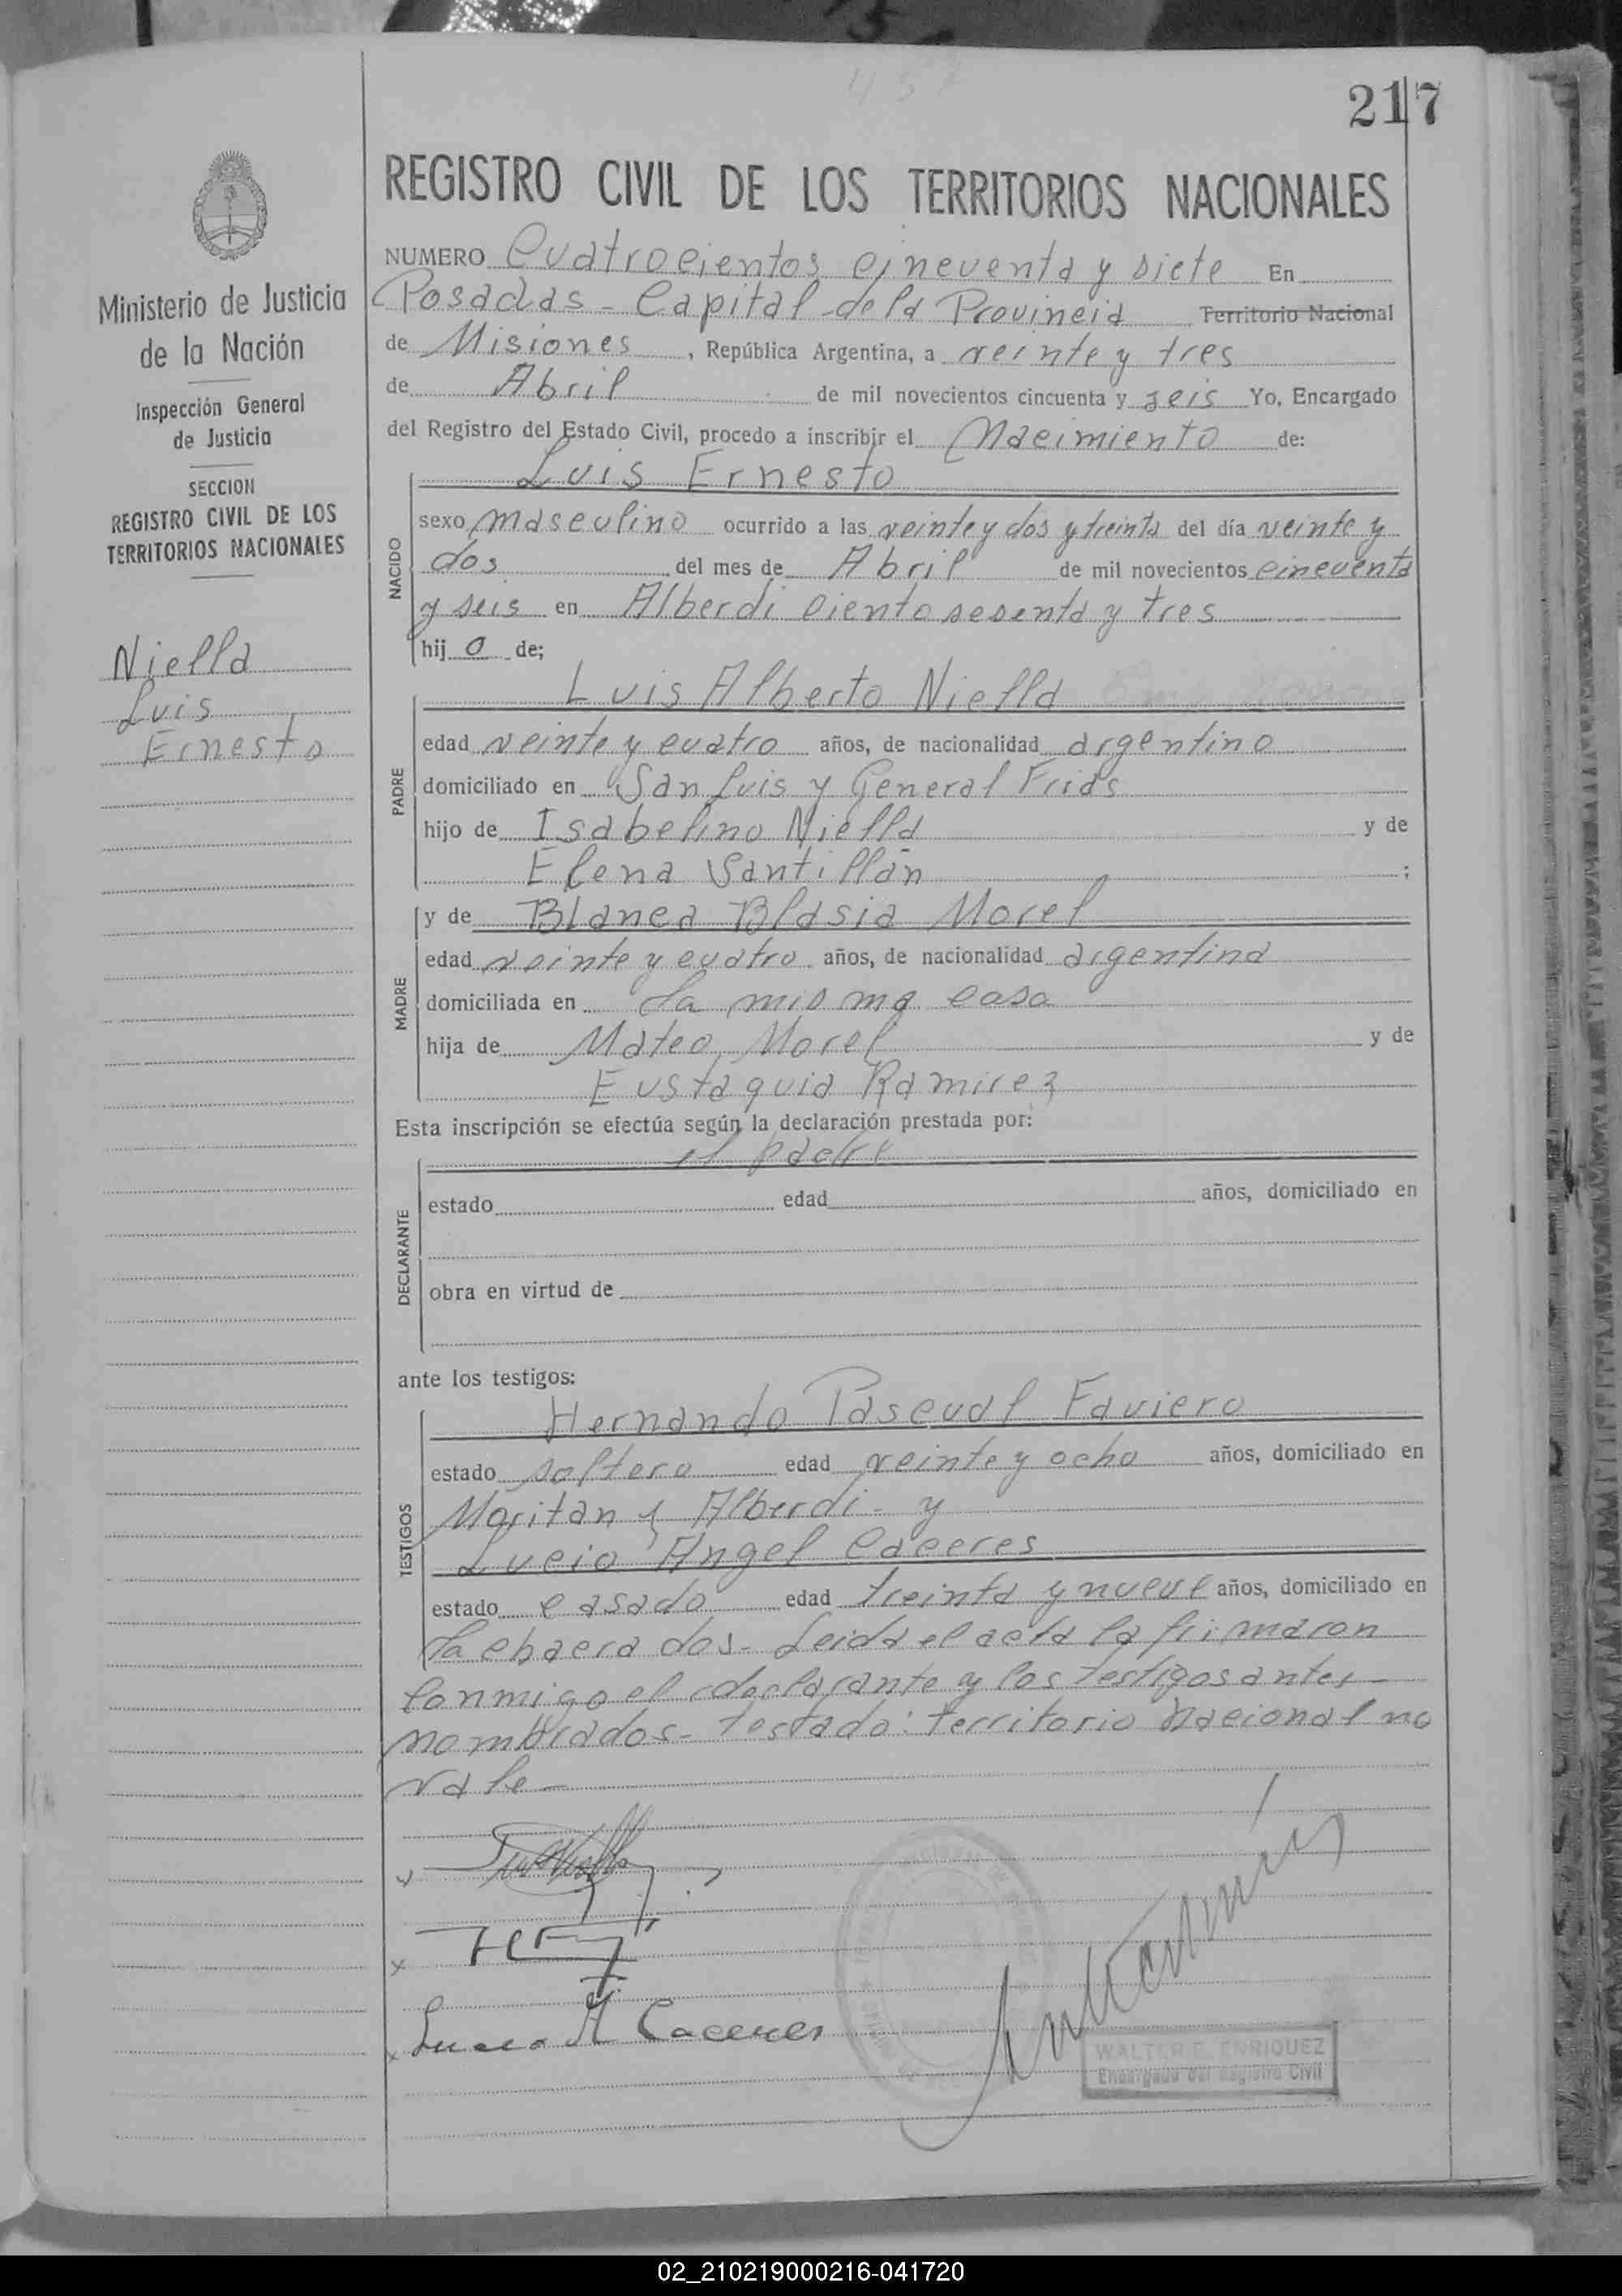 457
217
REGISTRO CIVIL DE LOS TERRITORIOS NACIONALES
NUMERO Cuatrocientos cincuenta y siete En
Posadas - Capital de la Provincia Territorio Nacional
de Misiones, República Argentina, a veinte y tres
de Abril de mil novecientos cincuenta y seis Yo, Encargado
del Registro del Estado Civil, procedo a inscribir el Nacimiento de:
Ministerio de Justicia
de la Nación
Inspección General
de Justicia
SECCION
REGISTRO CIVIL DE LOS
TERRITORIOS NACIONALES
Niella
Luis
Ernesto
NACIDO
Luis Ernesto
sexo masculino ocurrido a las veinte y dos y treinta del día veinte y
dos del mes de Abril de mil novecientos cincuenta
y seis en Alberdi ciento sesenta y tres
hijo de;
PADRE
Luis Alberto Niella
edad veinte y cuatro años, de nacionalidad argentino
domiciliado en San Luis y General Frias
hijo de Isabelino Niella y de
Elena Santillán ;
MADRE
y de Blanca Blasia Morel
edad veinte y cuatro años, de nacionalidad argentina
domiciliada en la misma casa
hija de Mateo Morel y de
Eustaquia Ramirez
Esta inscripción se efectúa según la declaración prestada por:
DECLARANTE
el padre
estado edad años, domiciliado en
obra en virtud de
ante los testigos:
TESTIGOS
Hernando Pascual Faviero
estado soltero edad veinte y ocho años, domiciliado en
Moritan y Alberdi - y
Lucio Angel Caceres
estado casado edad treinta y nueve años, domiciliado en
la chacra dos - Leida el acta la firmaron
conmigo el declarante y los testigos antes
nombrados - testado: territorio Nacional no
vale -
Lucio A Caceres
WALTER E. ENRIQUEZ
Encargado del Registro Civil
02_210219000216-041720